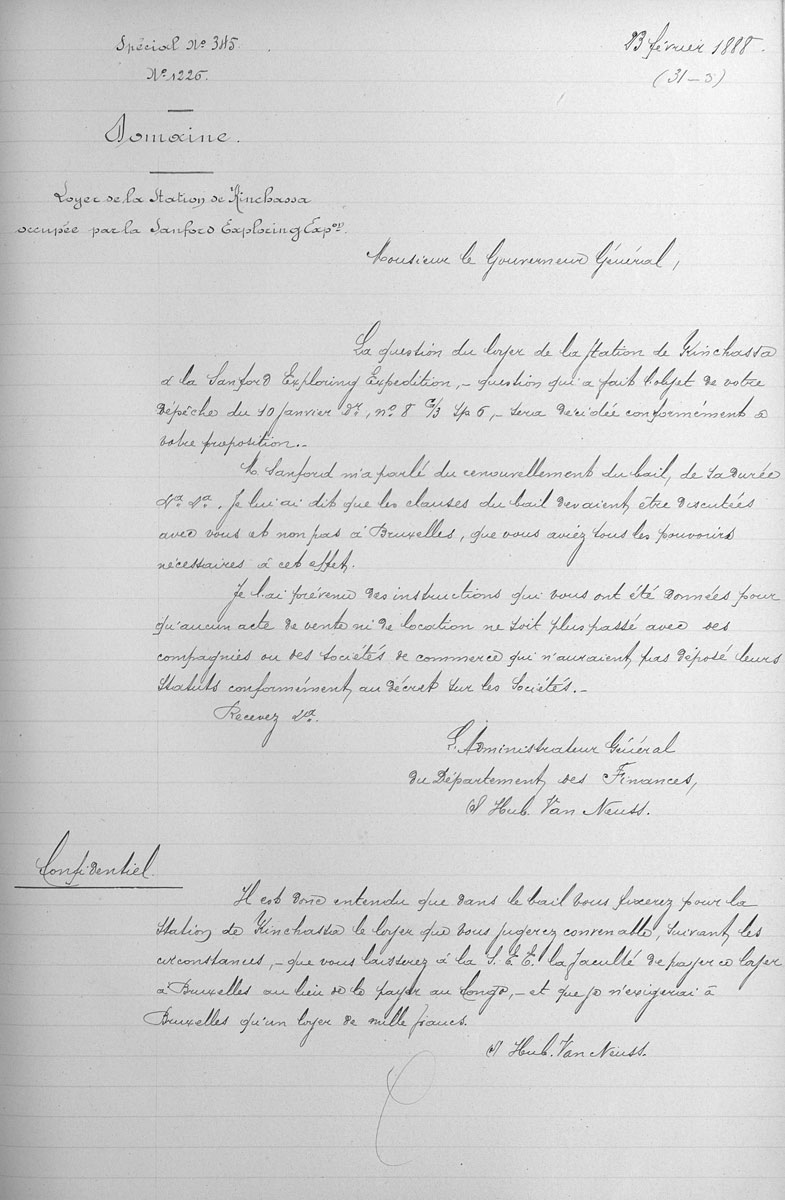 Spécial No 345.
No 1226.
23 février 1888.
(31-3)
Domaine.
Loyer de la Station de Kinchassa
occupée par la Sanford Exploring Expon.
Monsieur le Gouverneur Général,
La question du loyer de la station de Kinchassa
à la Sanford Exploring Expedition, - question qui a fait l'objet de votre
dépêche du 10 janvier dr, no 8 C/3 Sp 6, - sera décidée conformément à
votre proposition. -
M Sanford m'a parlé du renouvellement du bail, de sa durée
&a &a. Je lui ai dit que les clauses du bail devaient être discutées
avec vous et non pas à Bruxelles, que vous aviez tous les pouvoirs
nécessaires à cet effet.
Je l'ai prévenu des instructions qui vous ont été données pour
qu'aucun acte de vente ni de location ne soit plus passé avec des
compagnies ou des sociétés de commerce qui n'auraient pas déposé leurs
statuts conformément au décret sur les Sociétés. -
Recevez &a.
L'Administrateur Général
du Département des Finances,
s/ Hub. Van Neuss.
Confidentiel.
Il est donc entendu que dans le bail vous fixerez pour la
Station de Kinchassa le loyer que vous jugerez convenable, suivant les
circonstances, - que vous laisserez à la S. E. E. la faculté de payer ce loyer
à Bruxelles au lieu de le payer au Congo, - et que je n'exigerai à
Bruxelles qu'un loyer de mille francs.
s/ Hub. Van Neuss.